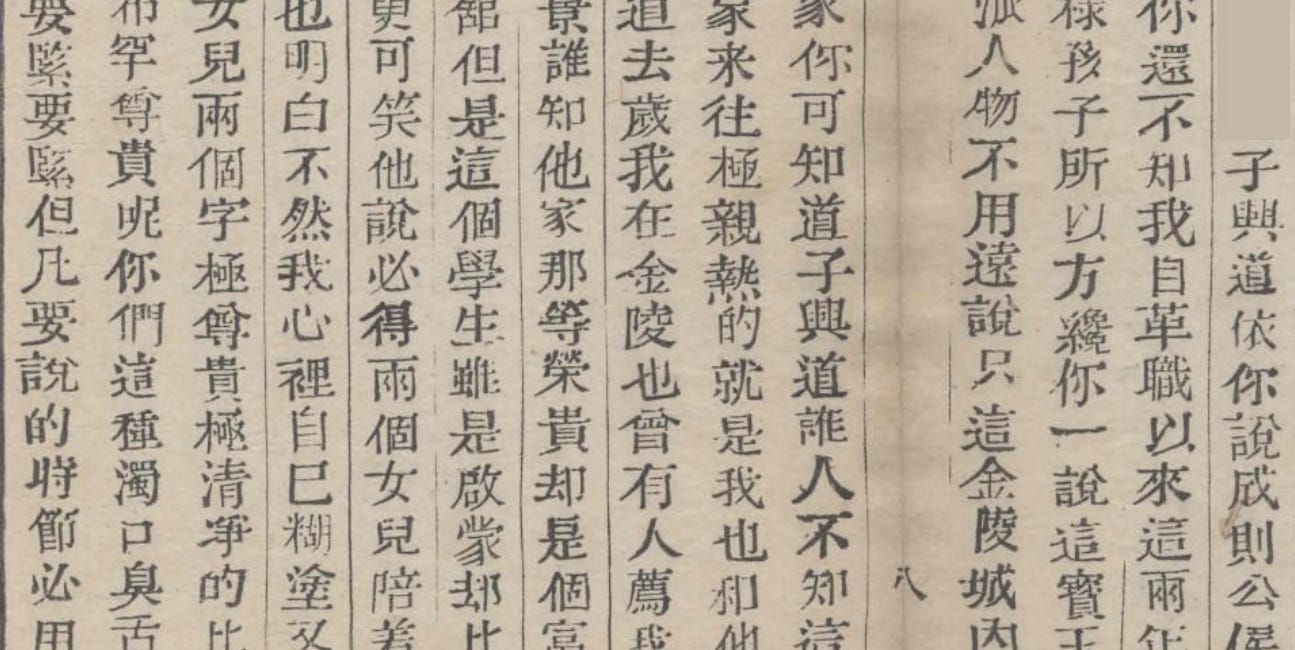 子興道依你說成則公侯
你還不知我自革職以來這兩年
樣孩子所以方纔你一說這寳玉
派人物不用遠說只這金陵城内
八
家你可知道子興道誰人不知這
家来往極親熱的就是我也和他
道去歲我在金陵也曾有人薦我
景誰知他家那等榮貴却是個富
舘但是這個學生雖是啟蒙却比
更可笑他說必得兩個女兒陪着
也明白不然我心裡自巳糊塗又
女兒兩個字極尊貴極清淨的比
希罕尊貴呢你們這種濁口臭舌
要緊要緊但凡要說的時節必用